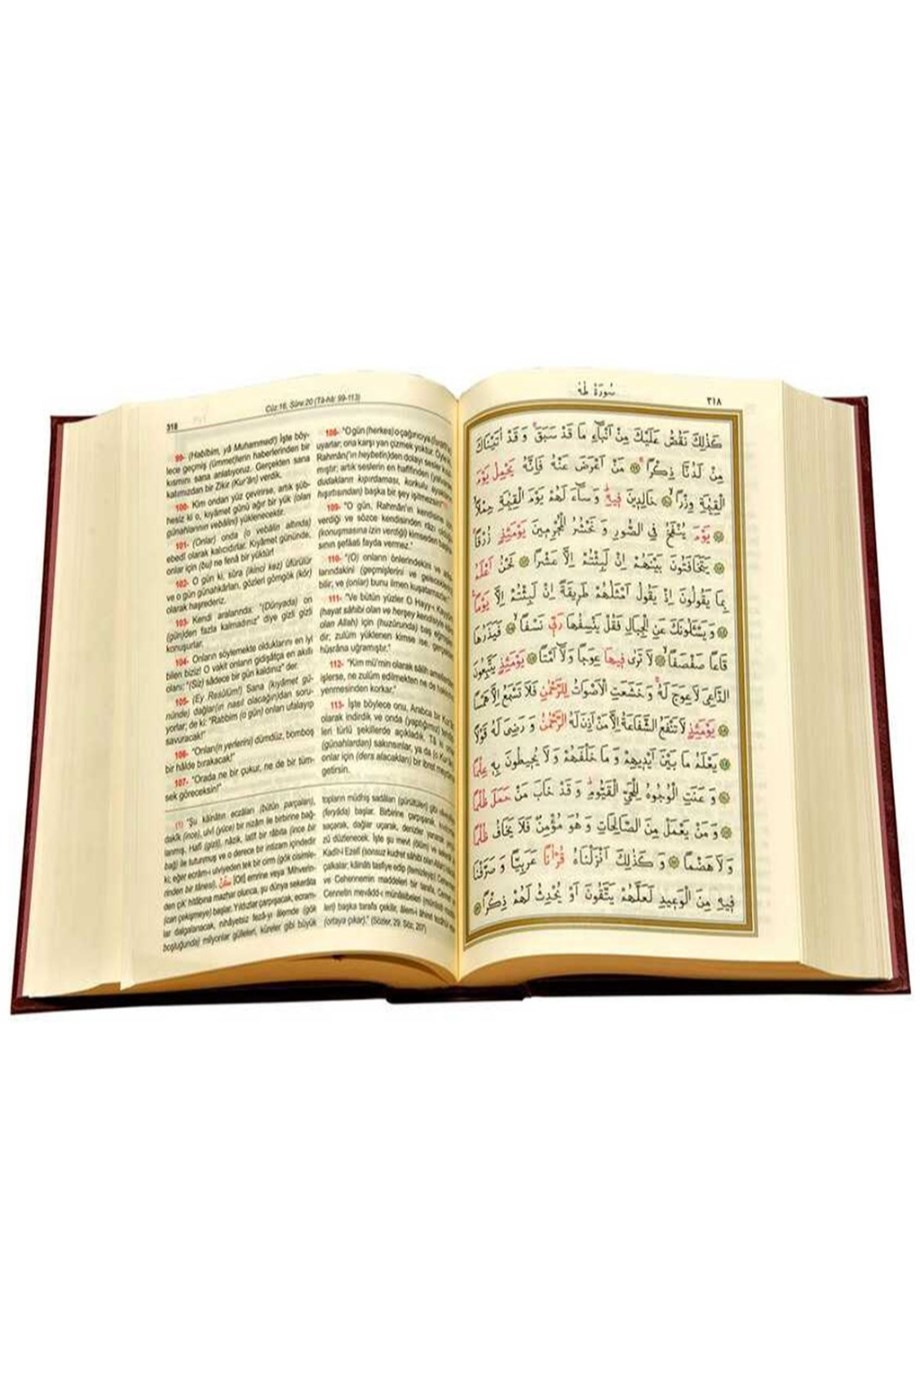 318
Cüz 16, Sûre 20 (Tâ-hâ: 99-113)
99- (Habîbim, yâ Muhammed!) İşte böy-
lece geçmiş (ümmet)lerin haberlerinden bir
kısmını sana anlatıyoruz. Gerçekten sana
katımızdan bir Zikir (Kur'ân) verdik.
100- Kim ondan yüz çevirirse, artık şüb-
hesiz ki o, kıyâmet günü ağır bir yük (olan
günahlarının vebâlini) yüklenecektir.
101- (Onlar) onda (o vebâlin altında)
ebedî olarak kalıcıdırlar. Kıyâmet gününde,
onlar için (bu) ne fenâ bir yüktür!
102- O gün ki, sûra (ikinci kez) üfürülür
ve o gün günahkârları, gözleri gömgök (kör)
olarak haşrederiz.
103- Kendi aralarında: "(Dünyada) on
(gün)den fazla kalmadınız" diye gizli gizli
konuşurlar.
104- Onların söylemekte olduklarını en iyi
bilen biziz! O vakit onların gidişâtça en akıllı
olanı: "(Siz) sâdece bir gün kaldınız" der.
105- (Ey Resûlüm!) Sana (kıyâmet gü-
nünde) dağlar(ın nasıl olacağın)dan soru-
yorlar; de ki: "Rabbim (o gün) onları ufalayıp
savuracak!"
106- "Onlar(ın yerlerini) dümdüz, bomboş
bir hâlde bırakacak!"
107- "Orada ne bir çukur, ne de bir tüm-
sek göreceksin!"
108- "O gün (herkes) o çağırıcıya
uyarlar; ona karşı yan çizmek yoktur.
Rahmân('ın heybetin)den dolayı sesler
mıştır; artık seslerin en hafifinden
dudakların kıpırdaması, korkulu
hışırtısından) başka bir şey işitmezsin!"
109- "O gün, Rahmân'ın kendisine
verdiği ve sözce kendisinden râzı
(konuşmasına izin verdiği) kimseden
sının şefâati fayda vermez."
110- "(O) onların önlerindekini ve
larındakini (geçmişlerini ve geleceklerini)
bilir, ve (onlar) bunu ilmen kuşatamazlar."
111- "Ve bütün yüzler O Hayy-ı
(hayat sâhibi olan ve herşey kendisiyle
olan Allah) için (huzûrunda) baş eğmiş
dir; zulüm yüklenen kimse ise,
hüsrâna uğramıştır."
112- "Kim mü'min olarak sâlih
işlerse, ne zulüm edilmekten ne de
yenmesinden korkar."
113- İşte böylece onu, Arabca bir
olarak indirdik ve onda
leri türlü şekillerde açıkladık. Tâ ki
(günahlardan) sakınsınlar, ya da
onlar için (ders alacakları) bir ibret
getirsin.
(1) "Şu kâinâtın eczâları (bütün parçaları),
dakîk (ince), ulvî (yüce) bir nizâm ile birbirine bağ-
lanmış. Hafî (gizli), nâzik, latîf bir râbıta (ince bir
bağ) ile tutunmuş ve o derece bir intizam içindedir
ki; eğer ecrâm-ı ulviyeden tek bir cirm (gök cisimle-
rinden bir tânesi), كُنْ [Ol!] emrine veya 'Mihverin-
den çık' hitâbına mazhar olunca, şu dünya sekerâta
(can çekişmeye) başlar. Yıldızlar çarpışacak, ecram-
lar dalgalanacak, nihâyetsiz fezâ-yı âlemde (gök
boşluğunda) milyonlar gülleleri, küreler gibi büyük
topların müdhiş sadâları (gürültüleri) gibi
(feryâda) başlar. Birbirine çarparak,
saçarak, dağlar uçarak, denizler yanarak,
zü düzlenecek. İşte şu mevt (ölüm) ve
Kadîr-i Ezelî (sonsuz kudret sâhibi olan
çalkalar; kâinâtı tasfiye edip (temizleyip)
ve Cehennemin maddeleri bir tarafa,
Cennetin mevâdd-ı
leri) başka tarafa çekilir, âlem-i âhiret
(ortaya çıkar)." (Sözler, 29. Söz, 207)
سُورَةُ طٰهٰ
٣١٨
كَذٰلِكَ نَقُصُّ عَلَيْكَ مِنْ اَنْبَٓاءِ مَا قَدْ سَبَقَ وَقَدْ اٰتَيْنَاكَ
مِنْ لَدُنَّا ذِكْرًا مَنْ اَعْرَضَ عَنْهُ فَاِنَّهُ يَحْمِلُ يَوْمَ
الْقِيٰمَةِ وِزْرًا خَالِدِينَ فِيهِ وَسَٓاءَ لَهُمْ يَوْمَ الْقِيٰمَةِ حِمْلًا
يَوْمَ يُنْفَخُ فِي الصُّورِ وَنَحْشُرُ الْمُجْرِمِينَ يَوْمَئِذٍ زُرْقًا
يَتَخَافَتُونَ بَيْنَهُمْ اِنْ لَبِثْتُمْ اِلَّا عَشْرًا نَحْنُ اَعْلَمُ
بِمَا يَقُولُونَ اِذْ يَقُولُ اَمْثَلُهُمْ طَرِيقَةً اِنْ لَبِثْتُمْ اِلَّا يَوْمًا
وَيَسْـَٔلُونَكَ عَنِ الْجِبَالِ فَقُلْ يَنْسِفُهَا رَبِّي نَسْفًا فَيَذَرُهَا
قَاعًا صَفْصَفًا لَا تَرٰى فِيهَا عِوَجًا وَلَٓا اَمْتًا يَوْمَئِذٍ يَتَّبِعُونَ
الدَّاعِيَ لَا عِوَجَ لَهُ وَخَشَعَتِ الْاَصْوَاتُ لِلرَّحْمٰنِ فَلَا تَسْمَعُ اِلَّا هَمْسًا
يَوْمَئِذٍ لَا تَنْفَعُ الشَّفَاعَةُ اِلَّا مَنْ اَذِنَ لَهُ الرَّحْمٰنُ وَرَضِيَ لَهُ قَوْلًا
يَعْلَمُ مَا بَيْنَ اَيْدِيهِمْ وَمَا خَلْفَهُمْ وَلَا يُحِيطُونَ بِهِ عِلْمًا
وَعَنَتِ الْوُجُوهُ لِلْحَيِّ الْقَيُّومِ وَقَدْ خَابَ مَنْ حَمَلَ ظُلْمًا
وَمَنْ يَعْمَلْ مِنَ الصَّالِحَاتِ وَهُوَ مُؤْمِنٌ فَلَا يَخَافُ ظُلْمًا
وَلَا هَضْمًا وَكَذٰلِكَ اَنْزَلْنَاهُ قُرْاٰنًا عَرَبِيًّا وَصَرَّفْنَا
فِيهِ مِنَ الْوَعِيدِ لَعَلَّهُمْ يَتَّقُونَ اَوْ يُحْدِثُ لَهُمْ ذِكْرًا